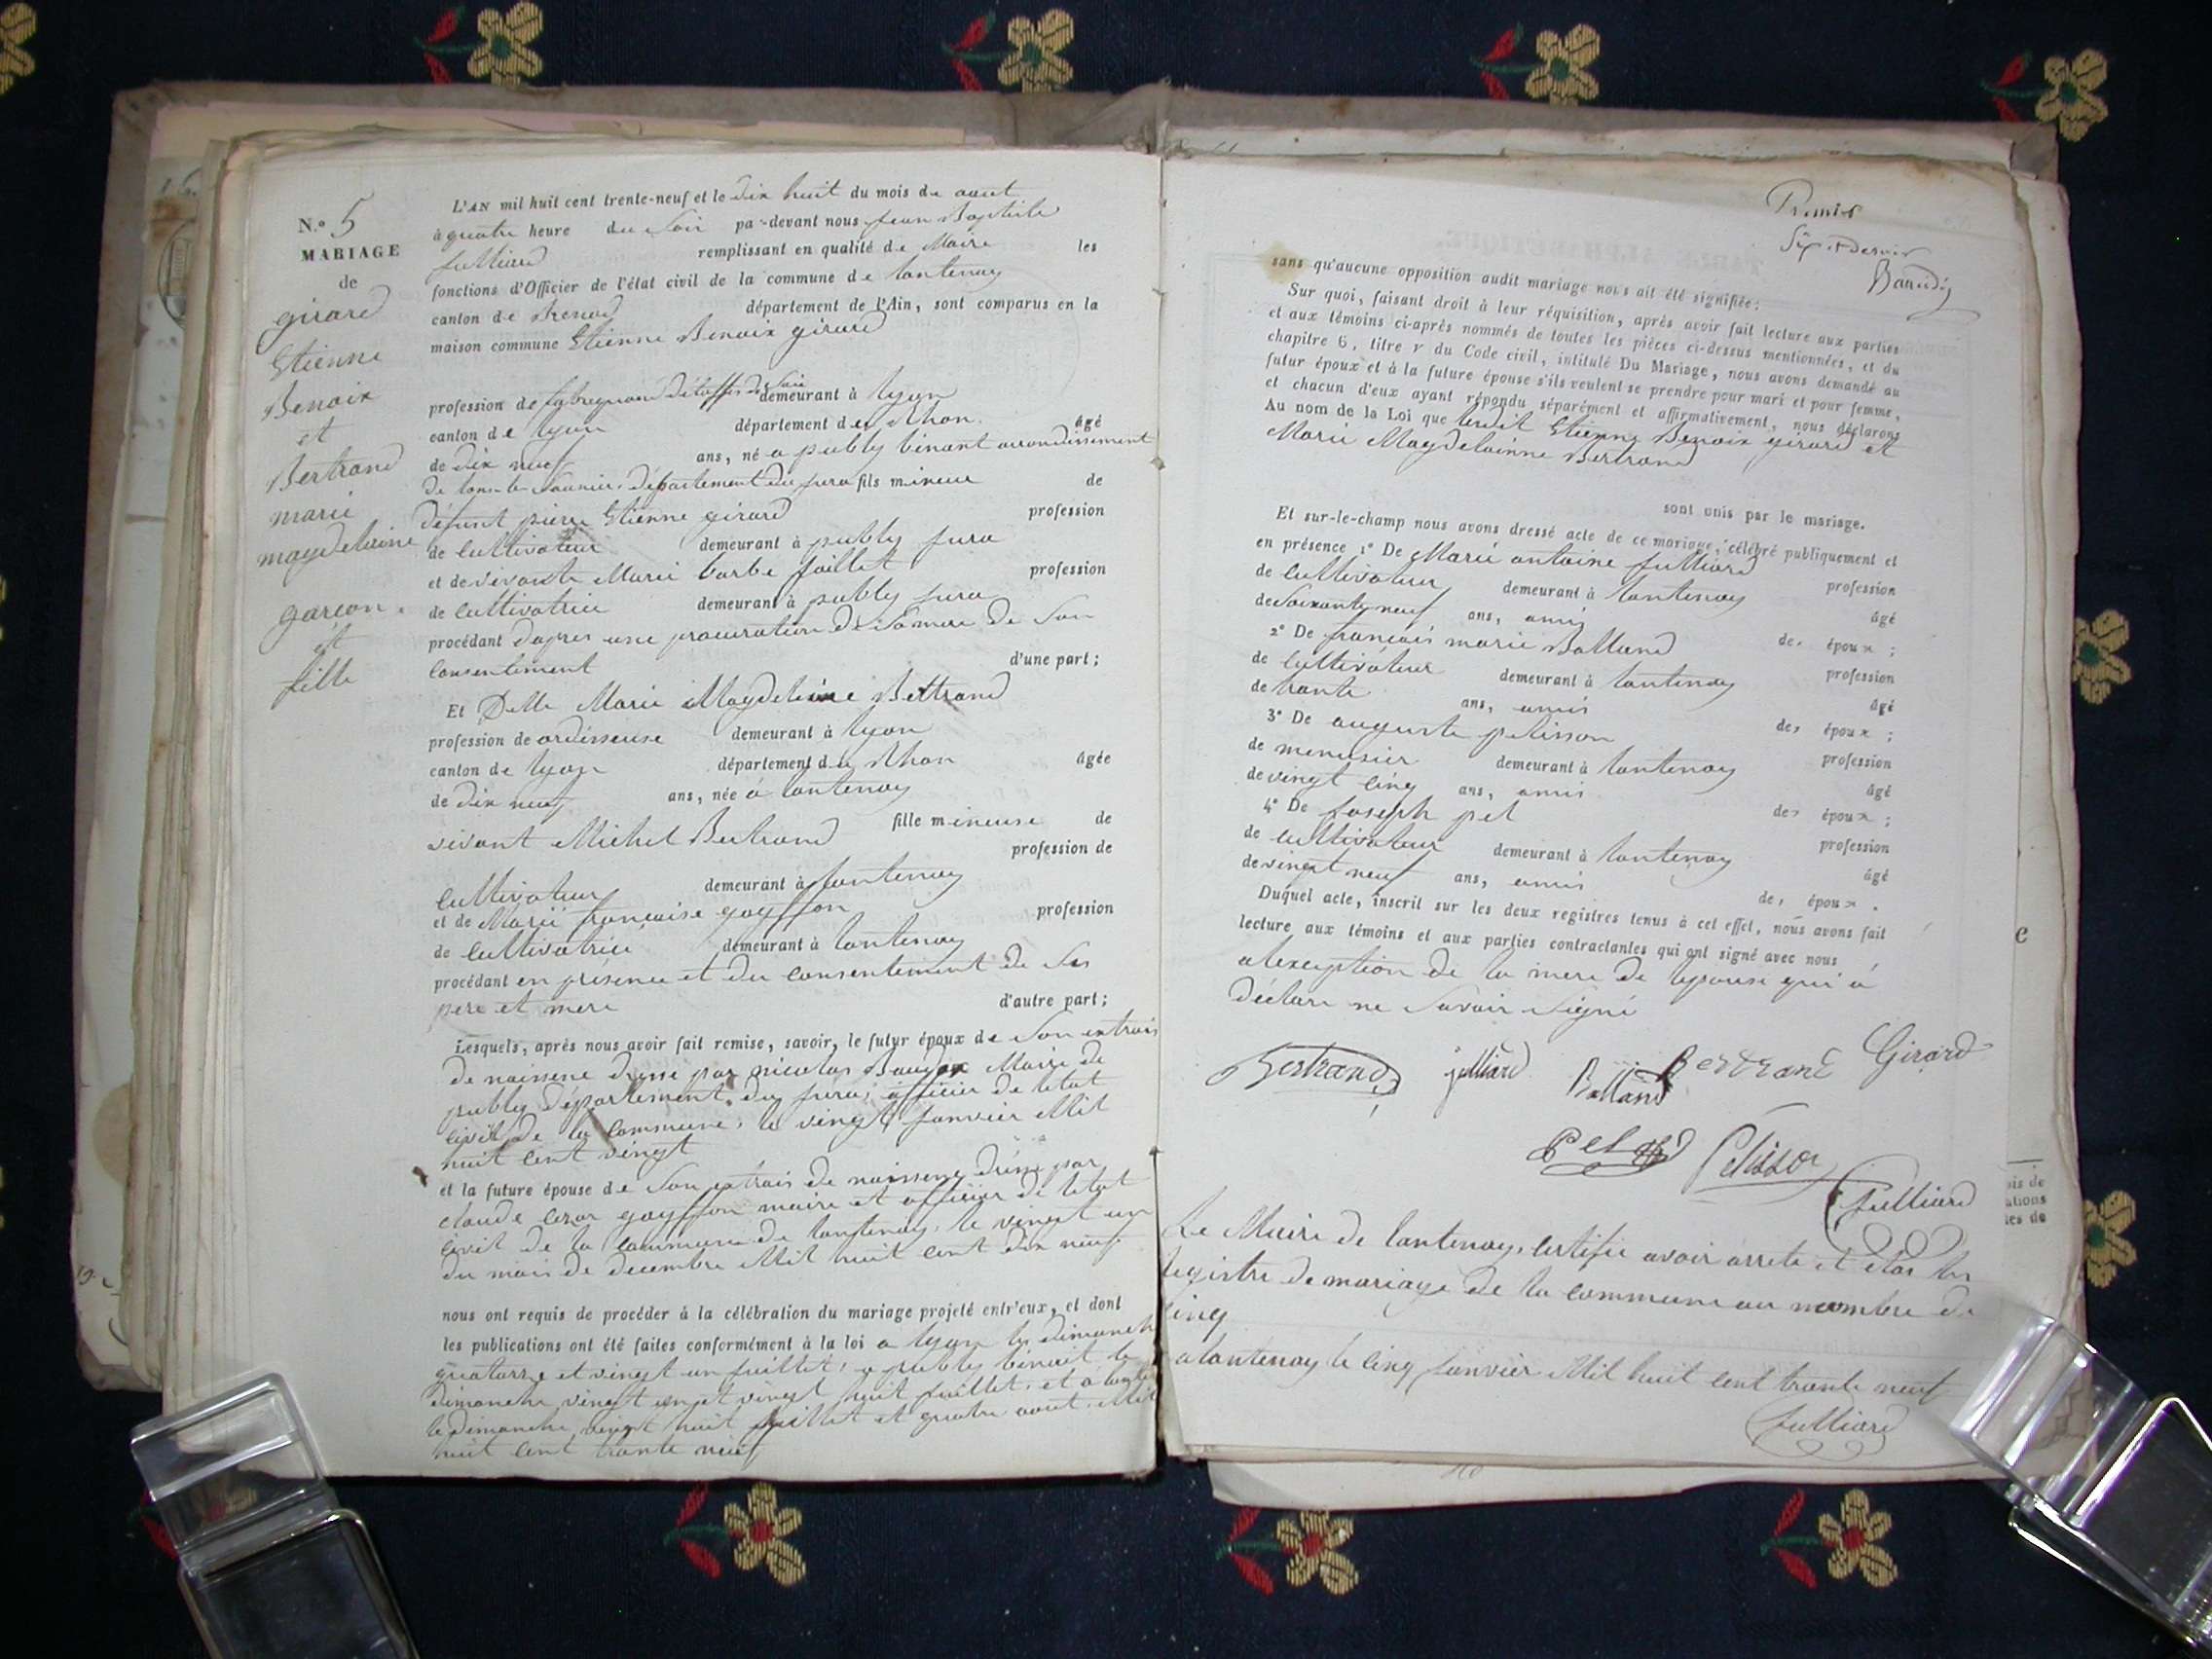 N.° 5
MARIAGE
de
girard
Etienne
Benoix
et
Bertrand
marie
magdelaine
garcon
et
fille
L'AN mil huit cent trente-neuf et le dix huit du mois de aout
à quatre heure du Soir par-devant nous Jean Baptiste
Julliard remplissant en qualité de Maire les
fonctions d'Officier de l'état civil de la commune de lantenay
canton de Brenod département de l'Ain, sont comparus en la
maison commune Etienne Benoix girard
profession de fabrequand d'étoffes de Soie demeurant à lyon
canton de lyon département de Rhon âgé
de dix neuf ans, né a publy binant arrondissement
de lons-le-Saunier, département du jura fils mineur de
défunt pierre Etienne girard profession
de Cultivateur demeurant à publy jura
et de vivante Marie barbe jaillet profession
de Cultivatrice demeurant à publy jura
procédant dapres une procuration de Sa mere de Son
Consentiment d'une part ;
Et Delle Marie Magdeleine Bertrand
profession de ordisseuse demeurant à lyon
canton de lyon département du Rhon âgée
de dix neuf ans, née à lantenay
fille mineuse de
vivant Michel Bertrand profession de
Cultivateur demeurant à lantenay
et de Marie françoise goyffon profession
de Cultivatrice demeurant à lantenay
procédant en présence et du consentement de Ses
pere et mere d'autre part ;
Lesquels, après nous avoir fait remise, savoir, le futur époux de Son extrais
de naissene dresse par nicolas Maire de
publy département du jura, officier de letat
Civil de la Commune, le vingt Janvier Mil
huit Cent vingt
et la future épouse de Son extrais de naissene dréssé par
claude Cesar goyffon maire et officier de letat
Civil de la Commune de lantenay, le vingt un
du mois de decembre Mil huit Cent dix neuf
nous ont requis de procéder à la célébration du mariage projeté entr'eux, et dont
les publications ont été faites conformément à la loi a lyon les dimanche
quatorze et vingt un juillet, a publy binait le
dimanche vingt un et vingt huit juillet, et a
le dimanche vingt huit juillet et quatre aout Mil
huit Cent trante neuf
Premier
Six et dernier
sans qu'aucune opposition audit mariage nous ait été signifiée ;
Sur quoi, faisant droit à leur réquisition, après avoir fait lecture aux parties
et aux témoins ci-après nommés de toutes les pièces ci-dessus mentionnées, et du
chapitre 6, titre v du Code civil, intitulé Du Mariage, nous avons demandé au
futur époux et à la future épouse s'ils veulent se prendre pour mari et pour femme,
et chacun d'eux ayant répondu séparément et affirmativement, nous déclarons
Au nom de la Loi que ledit Etienne Benoix girard et
Marie Magdelainne Bertrand
sont unis par le mariage.
Et sur-le-champ nous avons dressé acte de ce mariage, célébré publiquement et
en présence 1° De Marie antoine Julliard profession
de Cultivateur demeurant à lantenay âgé
de Soixante neuf ans, amis des époux ;
2° De francois marie Balland profession
de Cultivateur demeurant à lantenay âgé
de trante ans, amis des époux ;
3° De auguste pelisson profession
de menusier demeurant à lantenay âgé
de vingt cinq ans, amis des époux ;
4° De Joseph pel profession
de Cultivateur demeurant à lantenay âgé
de vingt neuf ans, amis des époux .
Duquel acte, inscrit sur les deux registres tenus à cet effet, nous avons fait
lecture aux témoins et aux parties contractantes qui ont signé avec nous
alexception de la mere de lepouse qui à
déclare ne Savoir Signé
Bertrand julliard Balland Bertrand Girard
Pel Pelisson
Julliard
Le Maire de lantenay, Certifie avoir arrete et clos les
registre de mariage de la commune au nombre de
cinq
a lantenay le cinq Janvier Mil huit Cent trante neuf
Julliard